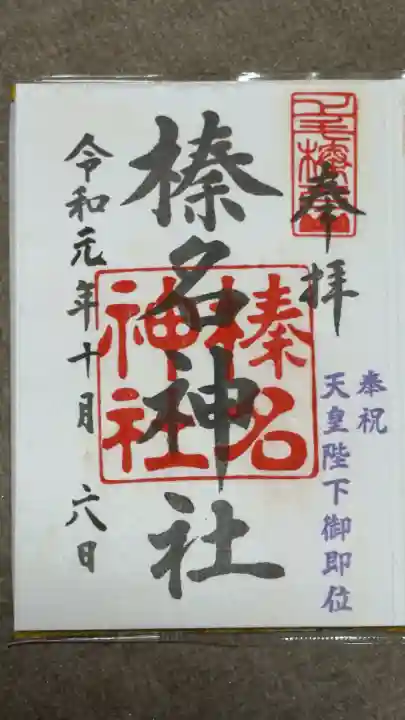 奉拝
奉祝
天皇陛下御即位
榛名神社
榛名
神社
令和元年十月 六日